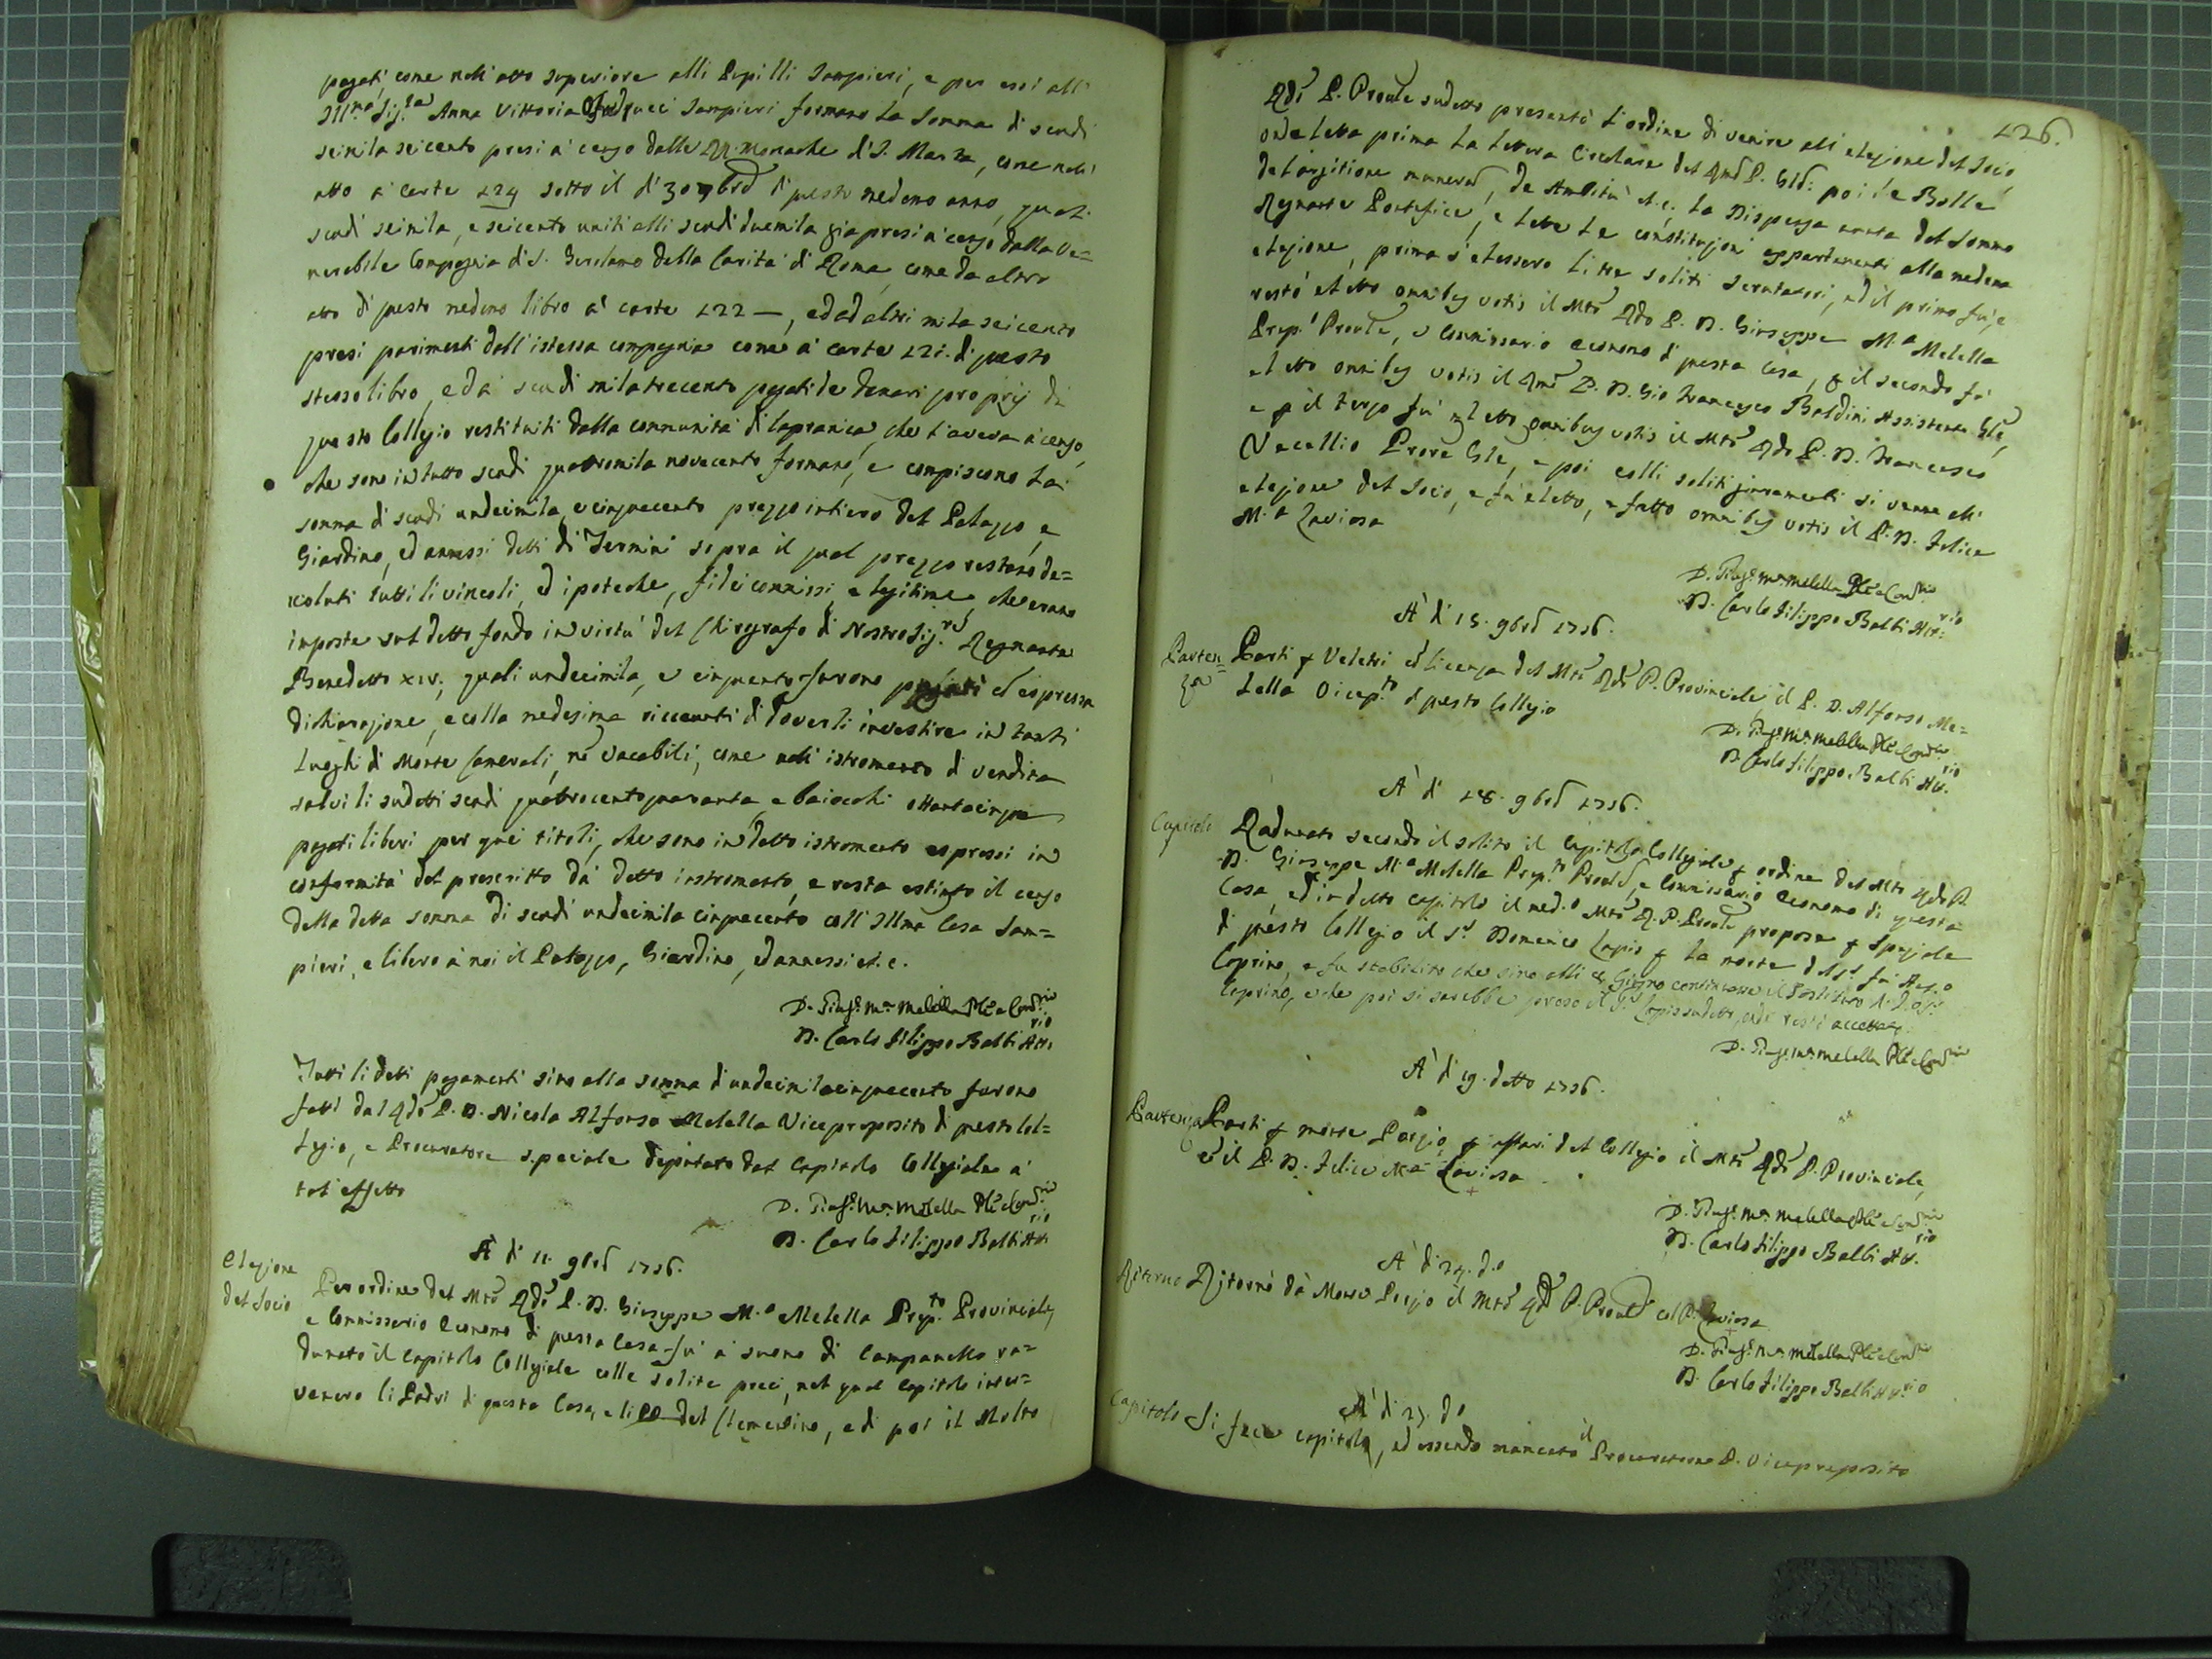 pagati, come nell'atto superiore alli Pupilli Sampieri, e per essi all'
Ill.ma Sig.ra Anna Vittoria Sampieri formano la somma di scudi
seimila seicento presi à censo dalle RR. Monache di S. Marta, come nell'
atto à carte 124 sotto il dì 30 7bre di questo medemo anno, quali
scudi seimila, e seicento uniti alli scudi duemila già presi à censo dalla Ve=
nerabile Compagnia di S. Girolamo della Carità di Roma, come da altro
atto di questo medemo libro à carte 122 —, ed ad altri mila seicento
presi parimenti dall'istessa compagnia come à carte 121. di questo
stesso libro, e da scudi mila trecento pagati de denari proprij di
questo Collegio restituiti dalla communità di Capranica, che l'aveva à censo,
che sono in tutto scudi quattromila novecento formano, e compiscono la
somma di scudi undecimila, e cinquecento prezzo intiero del Palazzo, e
Giardino, ed annessi detti di Termini sopra il qual prezzo restano de=
voluti tutti li vincoli, ed ipoteche, fideicommissi, e legitime, che erano
imposte sul detto fondo in virtù del Chirografo di Nostro Sig.re Regnante
Benedetto XIV., quali undecimila, e cinquecento furono pagati cõ espressa
dichiarazione, e colla medesima riceuti di doverli investire in tanti
Luoghi di Monte Camerali, nõ vacabili, come nell'istromento di vendita
salvi li sudetti scudi quattrocentoquaranta, e baiocchi ottantacinque
pagati liberi per quei titoli, che sono in detto istromento espressi in
conformità del prescritto dà detto instromento, e resta estinto il censo
della detta somma di scudi undecimila cinquecento coll'Illma Casa Sam=
pieri, e libero à noi il Palazzo, Giardino, ed annessi et.c.
D. Gius.e M.a Melella Ple e Com.rio
D. Carlo Filippo Balbi Att.rio
Tutti li detti pagamenti sino alla somma d'undecimilacinquecento furono
fatti dal Rdo P. D. Nicola Alfonso Melella Viceproposito di questo Col=
legio, e Procuratore speciale deputato dal Capitolo Collegiale à
tal effetto
D. Gius.e M.a Melella Ple e Com.rio
D. Carlo Filippo Balbi Att.rio
À dì 11. 9bre 1756.
Elezione
del Socio
Per ordine del Mto Rdo P. D. Giuseppe M.a Melella Prep.to Provinciale,
e Commissario Economo di questa Casa fù à suono di Campanello ra=
dunato il Capitolo Collegiale colle solite preci, nel qual Capitolo inter=
venero li Padri di questa Casa, e li PP. del Clementino, e di poi il Molto
126.
Rdo P. Proule sudetto presentò l'ordine di venire all'elezione del Socio,
onde letta prima la lettera Circolare del Rmo P. Gle: poi le Bolle
de largitione munerũ, de Ambitu et.c., la Dispensa avuta dal Sommo
Regnante Pontefice, e lette le constituzioni appartenenti alla medema
elezione, prima s'elessero li tre soliti scrutatori, ed il primo fù, e
restò eletto omnibus votis il Mto Rdo P. D. Giuseppe M.a Melella
Prep.to Proule, e Commissario Economo di questa Casa, p il secondo fù
eletto omnibus votis il Rmo P. D. Gio Francesco Baldini Assistente Gle,
e p il terzo fù eletto omnibus votis il Mto Rdo P. D. Francesco
Vecellio Prore Gle, e poi colli soliti giuramenti si venne all'
elezione del Socio, e fù eletto, e fatto omnibus votis il P. D. Felice
M.a Laviosa
D. Gius.e M.a Melella Ple e Com.rio
D. Carlo Filippo Balbi Att.rio
À dì 15. 9bre 1756.
Parten=
za
Partì p Veletri cõ licenza del Mto Rdo P. Provinciale il P. D. Alfonso Me=
lella Vicep.to di questo Collegio
D. Gius.e M.a Melella Ple e Com.rio
D. Carlo Filippo Balbi Att.rio
À dì 18. 9bre 1756.
Capitolo
Radunato secondo il solito il Capitolo Collegiale p ordine del Mto Rdo P.
D. Giuseppe M.a Melella Prep.to Proule, e Commissario Economo di questa
Casa, ed in detto capitolo il med.o Mto R. P. Proule propose p Speziale
di questo Collegio il S.r Domenico Lapis p la morte del S.r fù
Caprino, e fu stabilito che sino alli Giugno continuasse il
Caprino, e che poi si sarebbe preso il S.r Lapis sudetto, onde restò accettato.
D. Gius.e M.a Melella Ple e Com.rio
À dì 19. detto 1756.
Partenza
Partì p Monte Porzio p affari del Collegio il Mto Rdo P. Provinciale,
cõ il P. D. Felice M.a Laviosa
D. Gius.e M.a Melella Ple e Com.rio
D. Carlo Filippo Balbi Att.rio
À dì 24. d.o
Ritorno
Ritornò dà Monte Porzio il Mto Rdo P. Proule col P. Laviosa
D. Gius.e M.a Melella Ple e Com.rio
D. Carlo Filippo Balbi Att.rio
À dì 27. d.o
Capitolo
Si fece capitolo, ed essendo mancato il Procuratore P. Vicepreposito